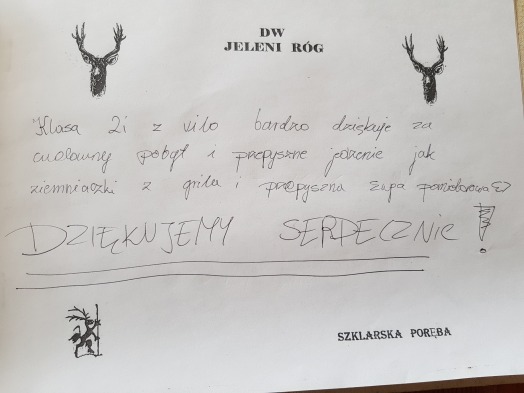 DW
JELENI RÓG
Klasa 2i z VILO bardzo dziękuje za
cudowny pobyt i przepyszne jedzenie jak
ziemniaczki z grila i przepyszna zupa pomidorowa
DZIĘKUJEMY SERDECZNIE!
SZKLARSKA PORĘBA